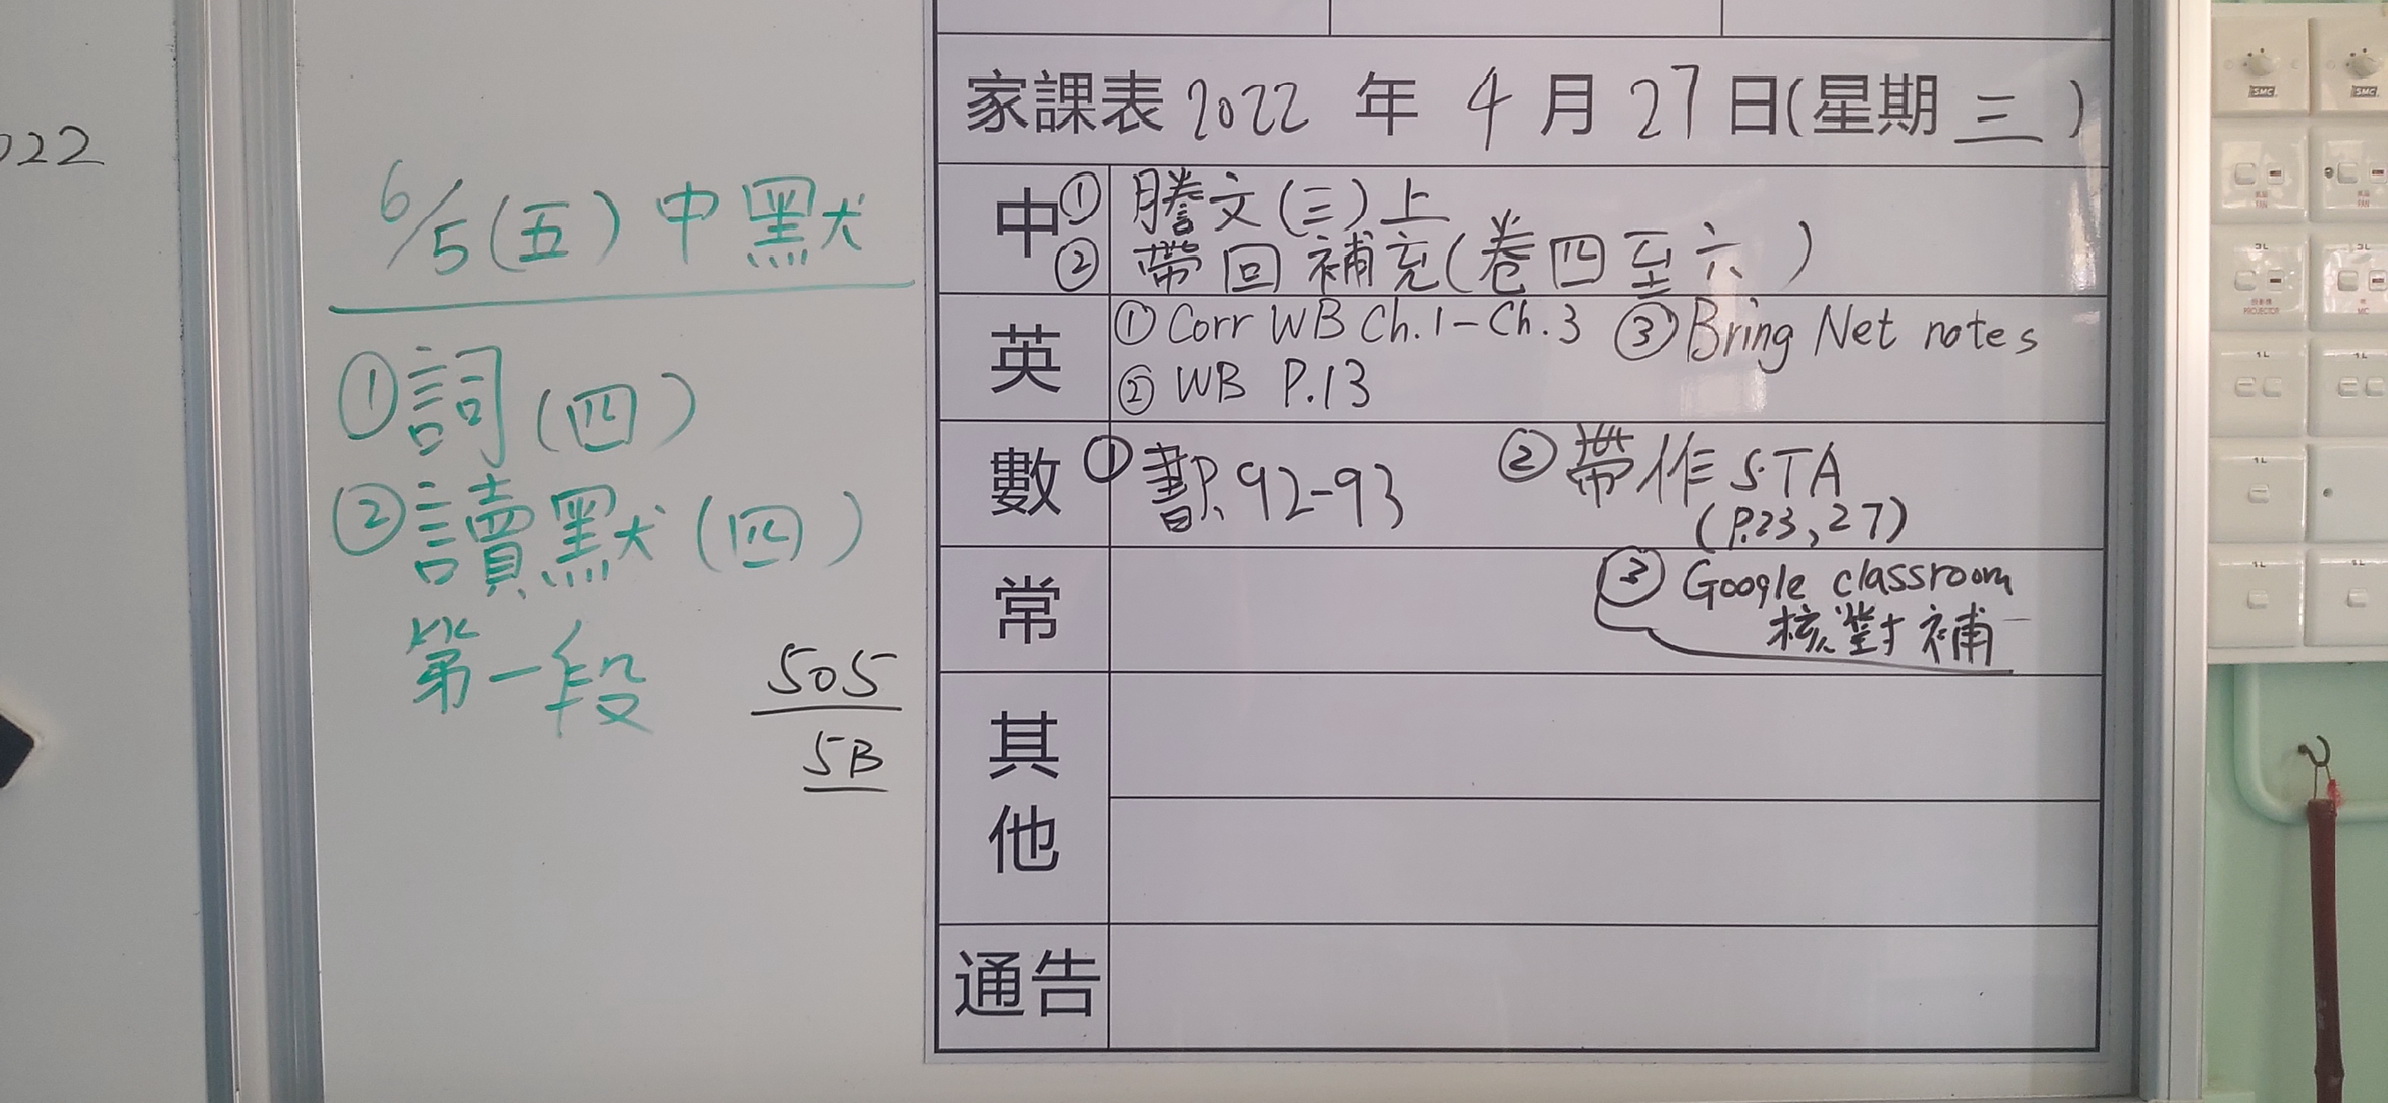 022
6/5(五)中默
①詞(四)
②讀默(四)
第一段
505
5B
家課表 2022 年 4 月 27 日(星期 三 )
中 ① 謄文(三)上
② 帶回補充(卷四至六)
英 ① Corr WB Ch.1-Ch.3 ③ Bring Net notes
② WB P.13
數 ① 書P.92-93 ② 帶作 STA
(P.23,27)
常 ③ Google classroom
核對補
其他
通告
SMC
SMC
FAN
FAN
PROJECTOR
MIC
1L
1L
1L
1L